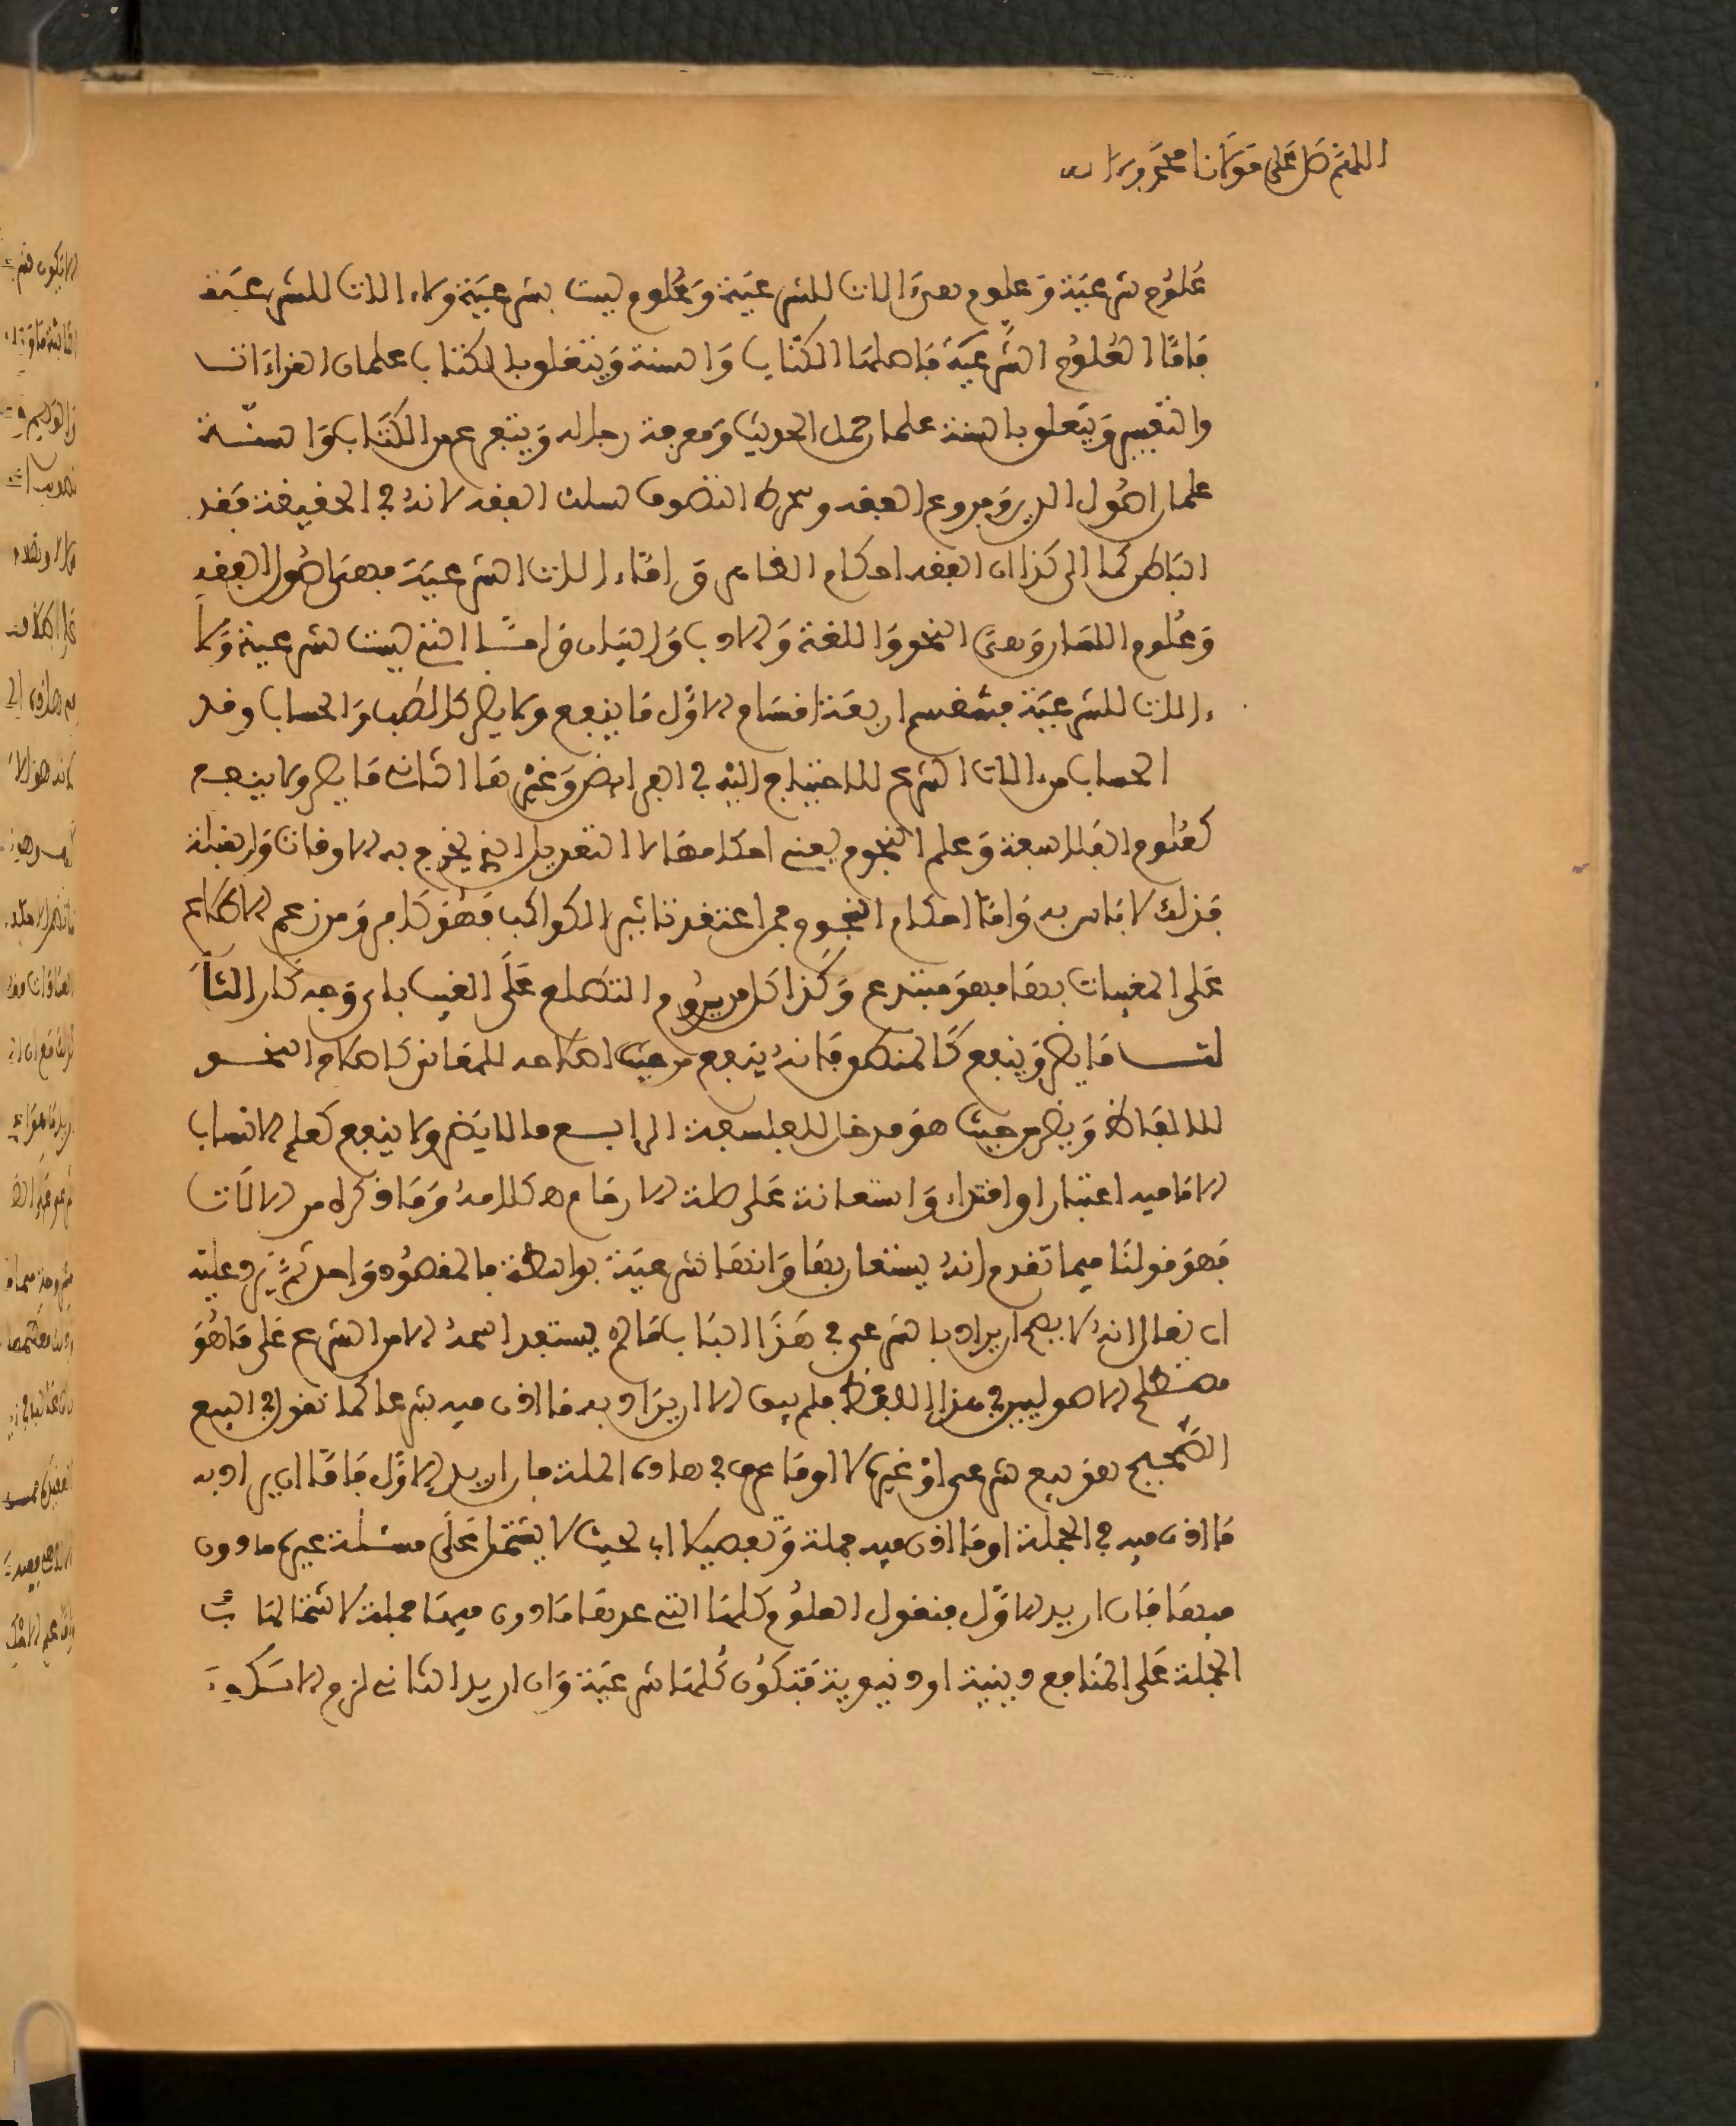 اللهم صل على مولانا محمد وءاله
علوم شرعية وعلوم هي ءالات للشرعية وعلوم ليست بشرعية ولا ءالات للشرعية
فاما العلوم الشرعية فاصلها الكتاب والسنة ويتعلق بالكتاب علمان القراءات
والتفسير ويتعلق بالسنة علمان حمل الحديث ومعرفة رجاله ويتفرع عن الكتاب والسنة
علمان اصول الدين وفروع الفقه وشرط التصوف لسلك الفقه لانه في الحقيقة فقه
الباطن كما ان كذا ان الفقه احكام الظاهر واما ءالات الشرعية فهي اصول الفقه
وعلوم اللسان وهي النحو واللغة والادب والبيان واما التي ليست شرعية ولا
ءالات للشرعية فتنقسم اربعة اقسام الاول ما ينفع ولا يضر كالطب والحساب وقد
الحساب من ءالات الشرع للاحتياج اليه في الفرايض وغيرها الثاني ما يضر ولا ينفع
كعلوم الفلاسفة وعلم النجوم يعني احكامها لا التعديل الذي يخرج به الاوقات والقبلة
فذلك لا باس به واما احكام النجوم فمن اعتقد تاثير الكواكب فهو كافر ومن زعم الاطلاع
على المغيبات بها فهو مبتدع وكذا كل من يروم التطلع على الغيب باي وجه كان الثا
لث ما يضر وينفع كالمنطق فانه ينفع من حيث اصلاحه للمعاني كاصلاح النحو
للالفاظ ويضر من حيث هو مدخل للفلسفة الرابع ما لا يضر ولا ينفع كعلم الانساب
الا ما فيه اعتبار او اقتداء واستعانة على صلة الارحام ه كلامه وما ذكره من الالات
فهو قولنا فيما تقدم انه يستعان بها وانها شرعية بواسطة فالمقصود واحد ثم يرد عليه
ان يقال انه لا يصح ان يراد بالشرعي في هذا الباب ما لم يستفد اسمه الا من الشرع على ما هو
مصطلح الاصوليين في هذا اللفظ فلم يبق الا ان يراد به ما اذن فيه شرعا كما نقول في البيع
الصحيح هو بيع شرعي او غيره لا او ما عرف في هاذه الملة فان اريد الاول فاما ان يراد به
ما اذن فيه في الجملة او ما اذن فيه جملة وتفصيلا اي بحيث لا يشتمل على مسئلة غير ماذون
فيها فان اريد الاول فنقول العلوم كلها التي عدها ماذون فيها جملة لاشتمالها في
الجملة على المنافع دينية او دنيوية فتكون كلها شرعية وان اريد الثاني لزم الا تكون